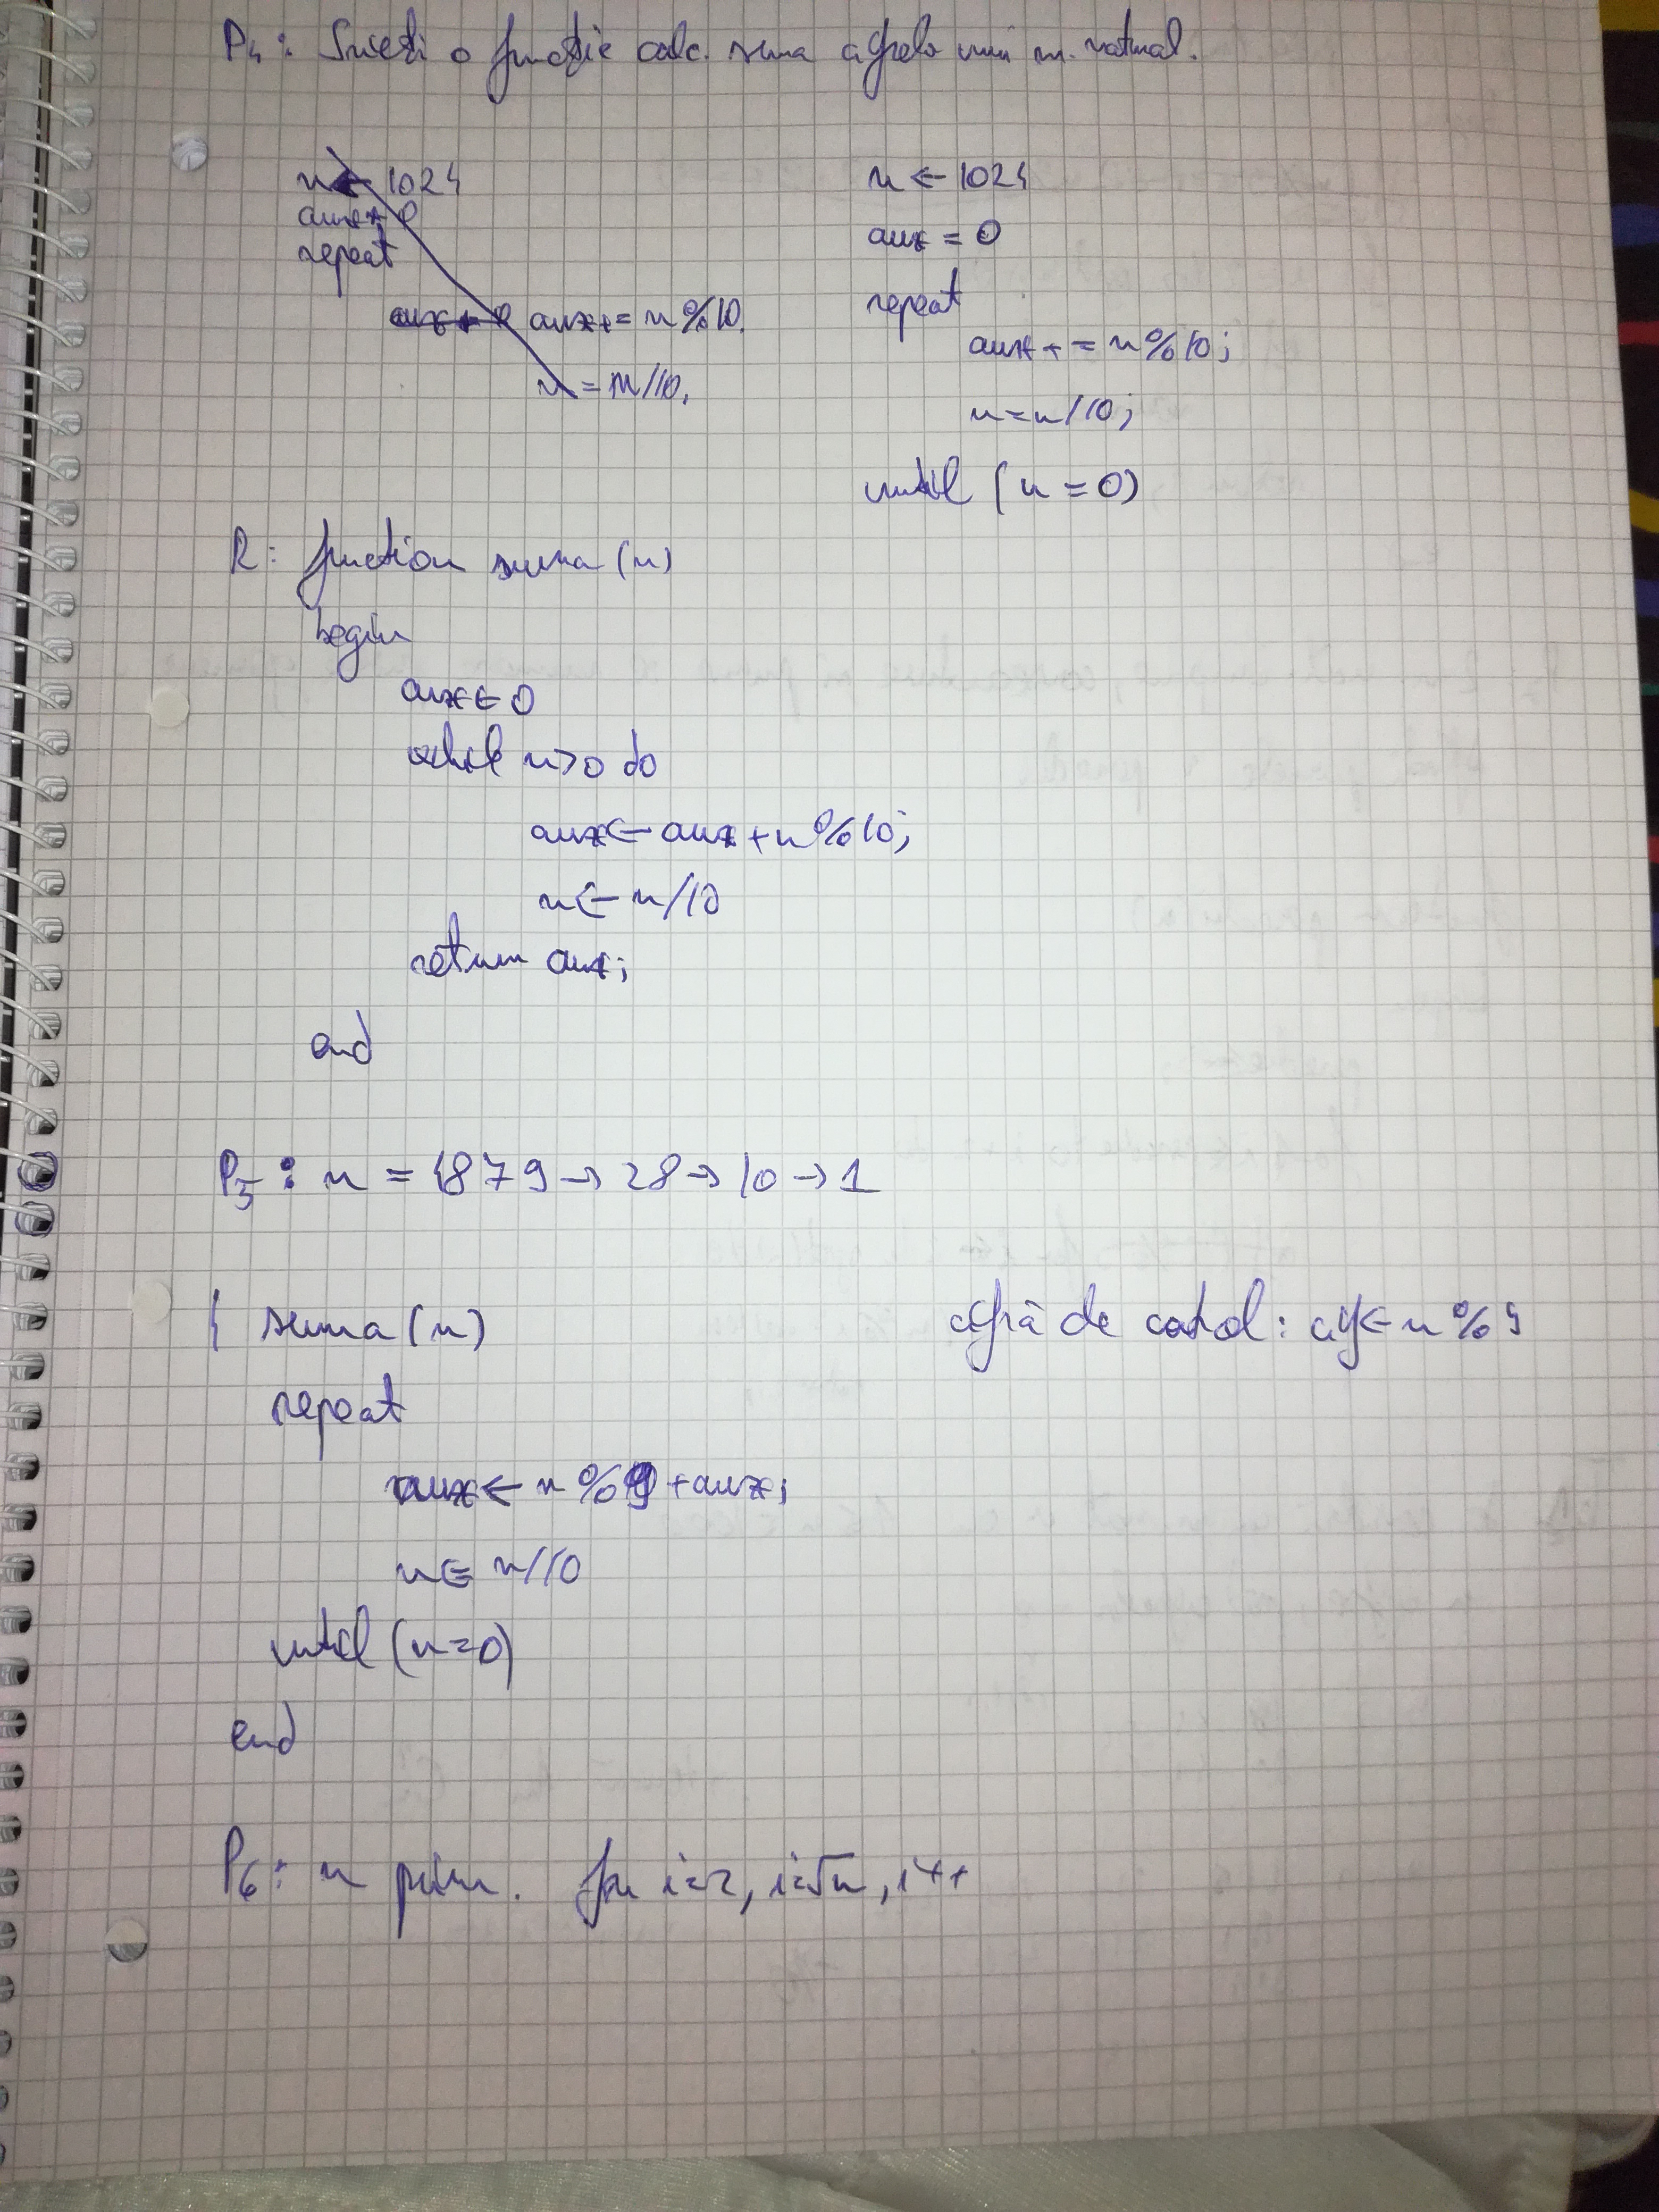 P4: Scrieți o funcție calc. suma cifrelor unui nr. natural.
n ← 1024
aux = 0
repeat
aux += n%10.
n = n/10.
n ← 1024
aux = 0
repeat
aux += n%10;
n = n/10;
until (n = 0)
R: function suma (n)
begin
aux ← 0
while n>0 do
aux ← aux + n%10;
n ← n/10
return aux;
end
P5: n = 1879 → 28 → 10 → 1
suma (n)
cifră de control: cif ← n%9
repeat
aux ← n%9 + aux;
n = n/10
until (n=0)
end
P6: n prim. for i=2, i=√n, i++